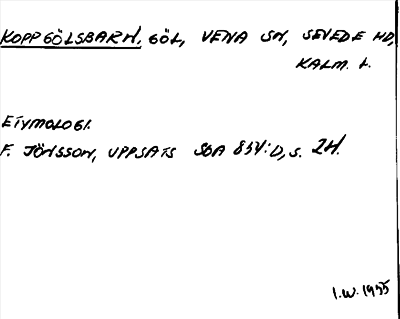 KOPPGÖLSBARN, GÖL, VENA SN, SEVEDE HD,
KALM. L.
ETYMOLOGI.
F. JÖNSSON, UPPSATS SOA 854:D, S. 24.
I.W. 1955